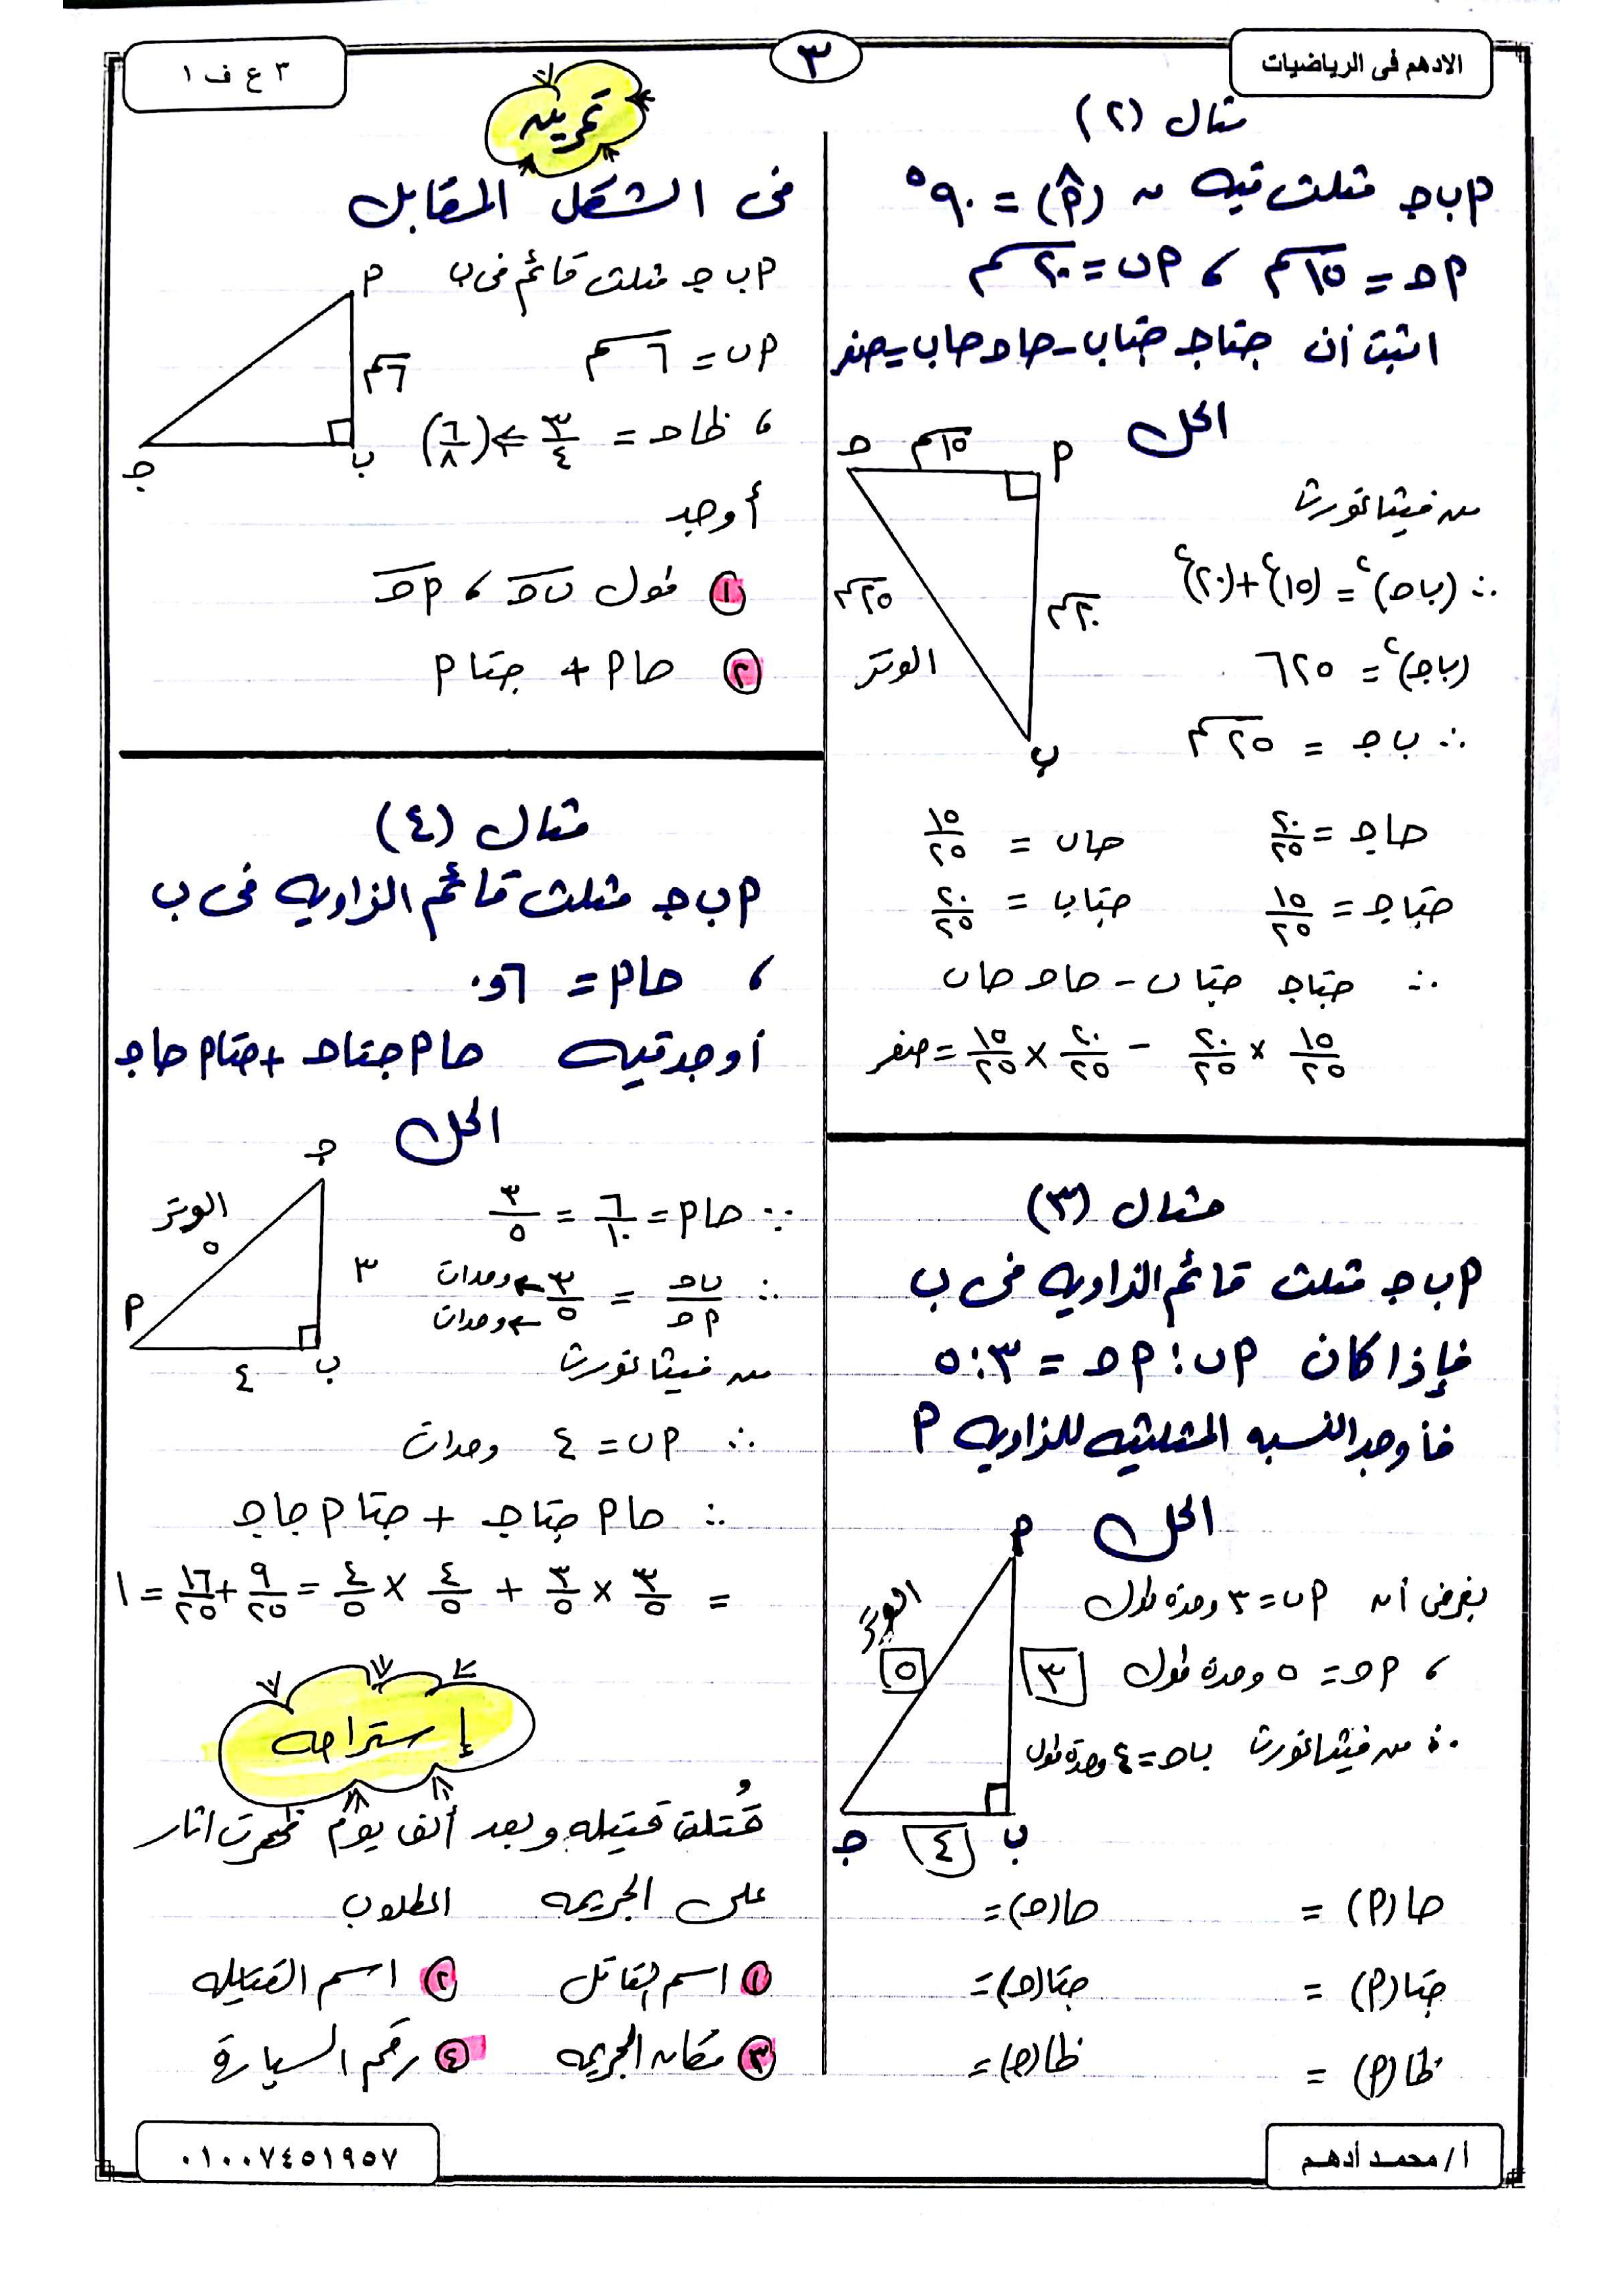 الادهم فى الرياضيات
٣
٣ ع ف ١
مثال (٢)
P ب جـ مثلث فيه ق (P̂) = ٩٠°
P جـ = ١٥ سم ، P ب = ٢٠ سم
اثبت أن جتاجـ جتاب - حاجـ حاب = صفر
الحل
جـ ١٥ سم P
من فيثاغورث
∴ (ب جـ)² = (١٥)² + (٢٠)²
٢٥ سم ٢٠ سم
(ب جـ)² = ٦٢٥
الوتر
∴ ب جـ = ٢٥ سم
ب
حاجـ = ٢٠/٢٥ حاب = ١٥/٢٥
جتاجـ = ١٥/٢٥ جتاب = ٢٠/٢٥
∴ جتاجـ جتاب - حاجـ حاب
١٥/٢٥ × ٢٠/٢٥ - ٢٠/٢٥ × ١٥/٢٥ = صفر
مثال (٣)
P ب جـ مثلث قائم الزاويه فى ب
فإذا كان P ب : P جـ = ٣ : ٥
فأوجد النسبه المثلثيه للزاويه P
الحل
P
بفرض أن P ب = ٣ وحدة طول
الوتر
، P جـ = ٥ وحدة طول
٣ ٥
∴ من فيثاغورث ب جـ = ٤ وحدة طول
ب ٤ جـ
حا(P) = حا(جـ) =
جتا(P) = جتا(جـ) =
ظا(P) = ظا(جـ) =
تمرين
فى الشكل المقابل
P ب جـ مثلث قائم فى ب
P
P ب = ٦ سم
٦ سم
، ظاجـ = ٣/٤ ← (٦/٨)
ب جـ
أوجد
١ طول ب جـ ، P جـ
٢ حاP + جتاP
مثال (٤)
P ب جـ مثلث قائم الزاويه فى ب
، حاP = ٠٫٦
أوجد قيمه حاP جتاجـ + جتاP حاجـ
الحل
جـ
∵ حاP = ٦/١٠ = ٣/٥
الوتر
٥
٣
∴ ب جـ / P جـ = ٣/٥ ← وحدات ← وحدات
P ٤ ب
من فيثاغورث
∴ P ب = ٤ وحدات
∴ حاP جتاجـ + جتاP حاجـ
= ٣/٥ × ٣/٥ + ٤/٥ × ٤/٥ = ٩/٢٥ + ١٦/٢٥ = ١
إستراحه
قُتلة قتيله وبعد ألف يوم ظهرت اثار
على الجريمه المطلوب
١ اسم القاتل ٢ اسم القتيله
٣ مكان الجريمه ٤ رقم السيارة
أ/ محمد أدهم
٠١٠٠٧٤٥١٩٥٧